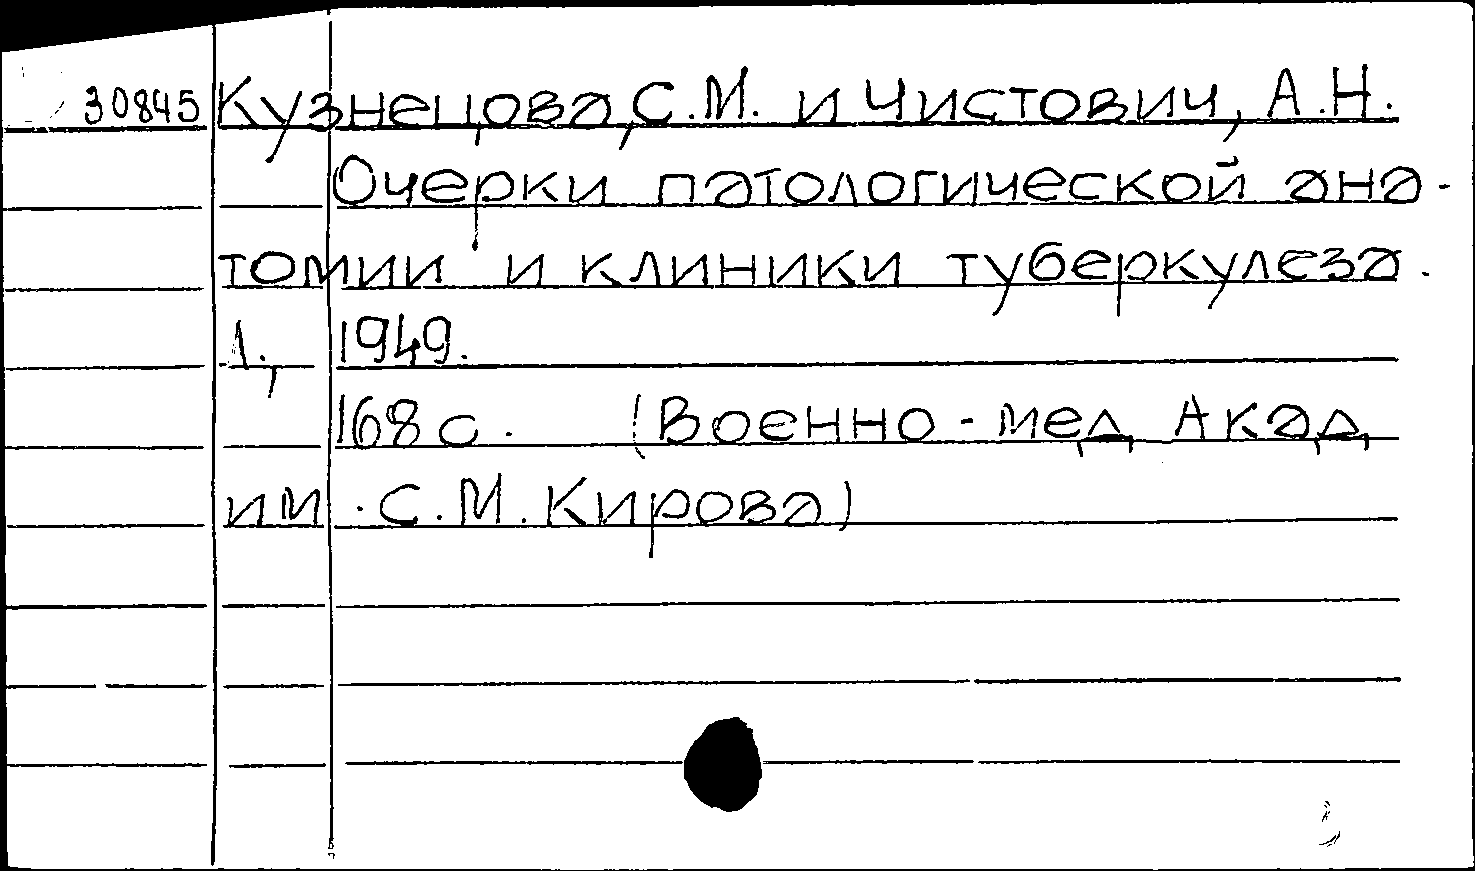 30845 Кузнецова, С.М. и Чистович, А.Н.
Очерки патологической ана-
томии и клиники туберкулеза.
Л., 1949.
168 с. (Военно-мед. Акад.
им. С.М. Кирова)